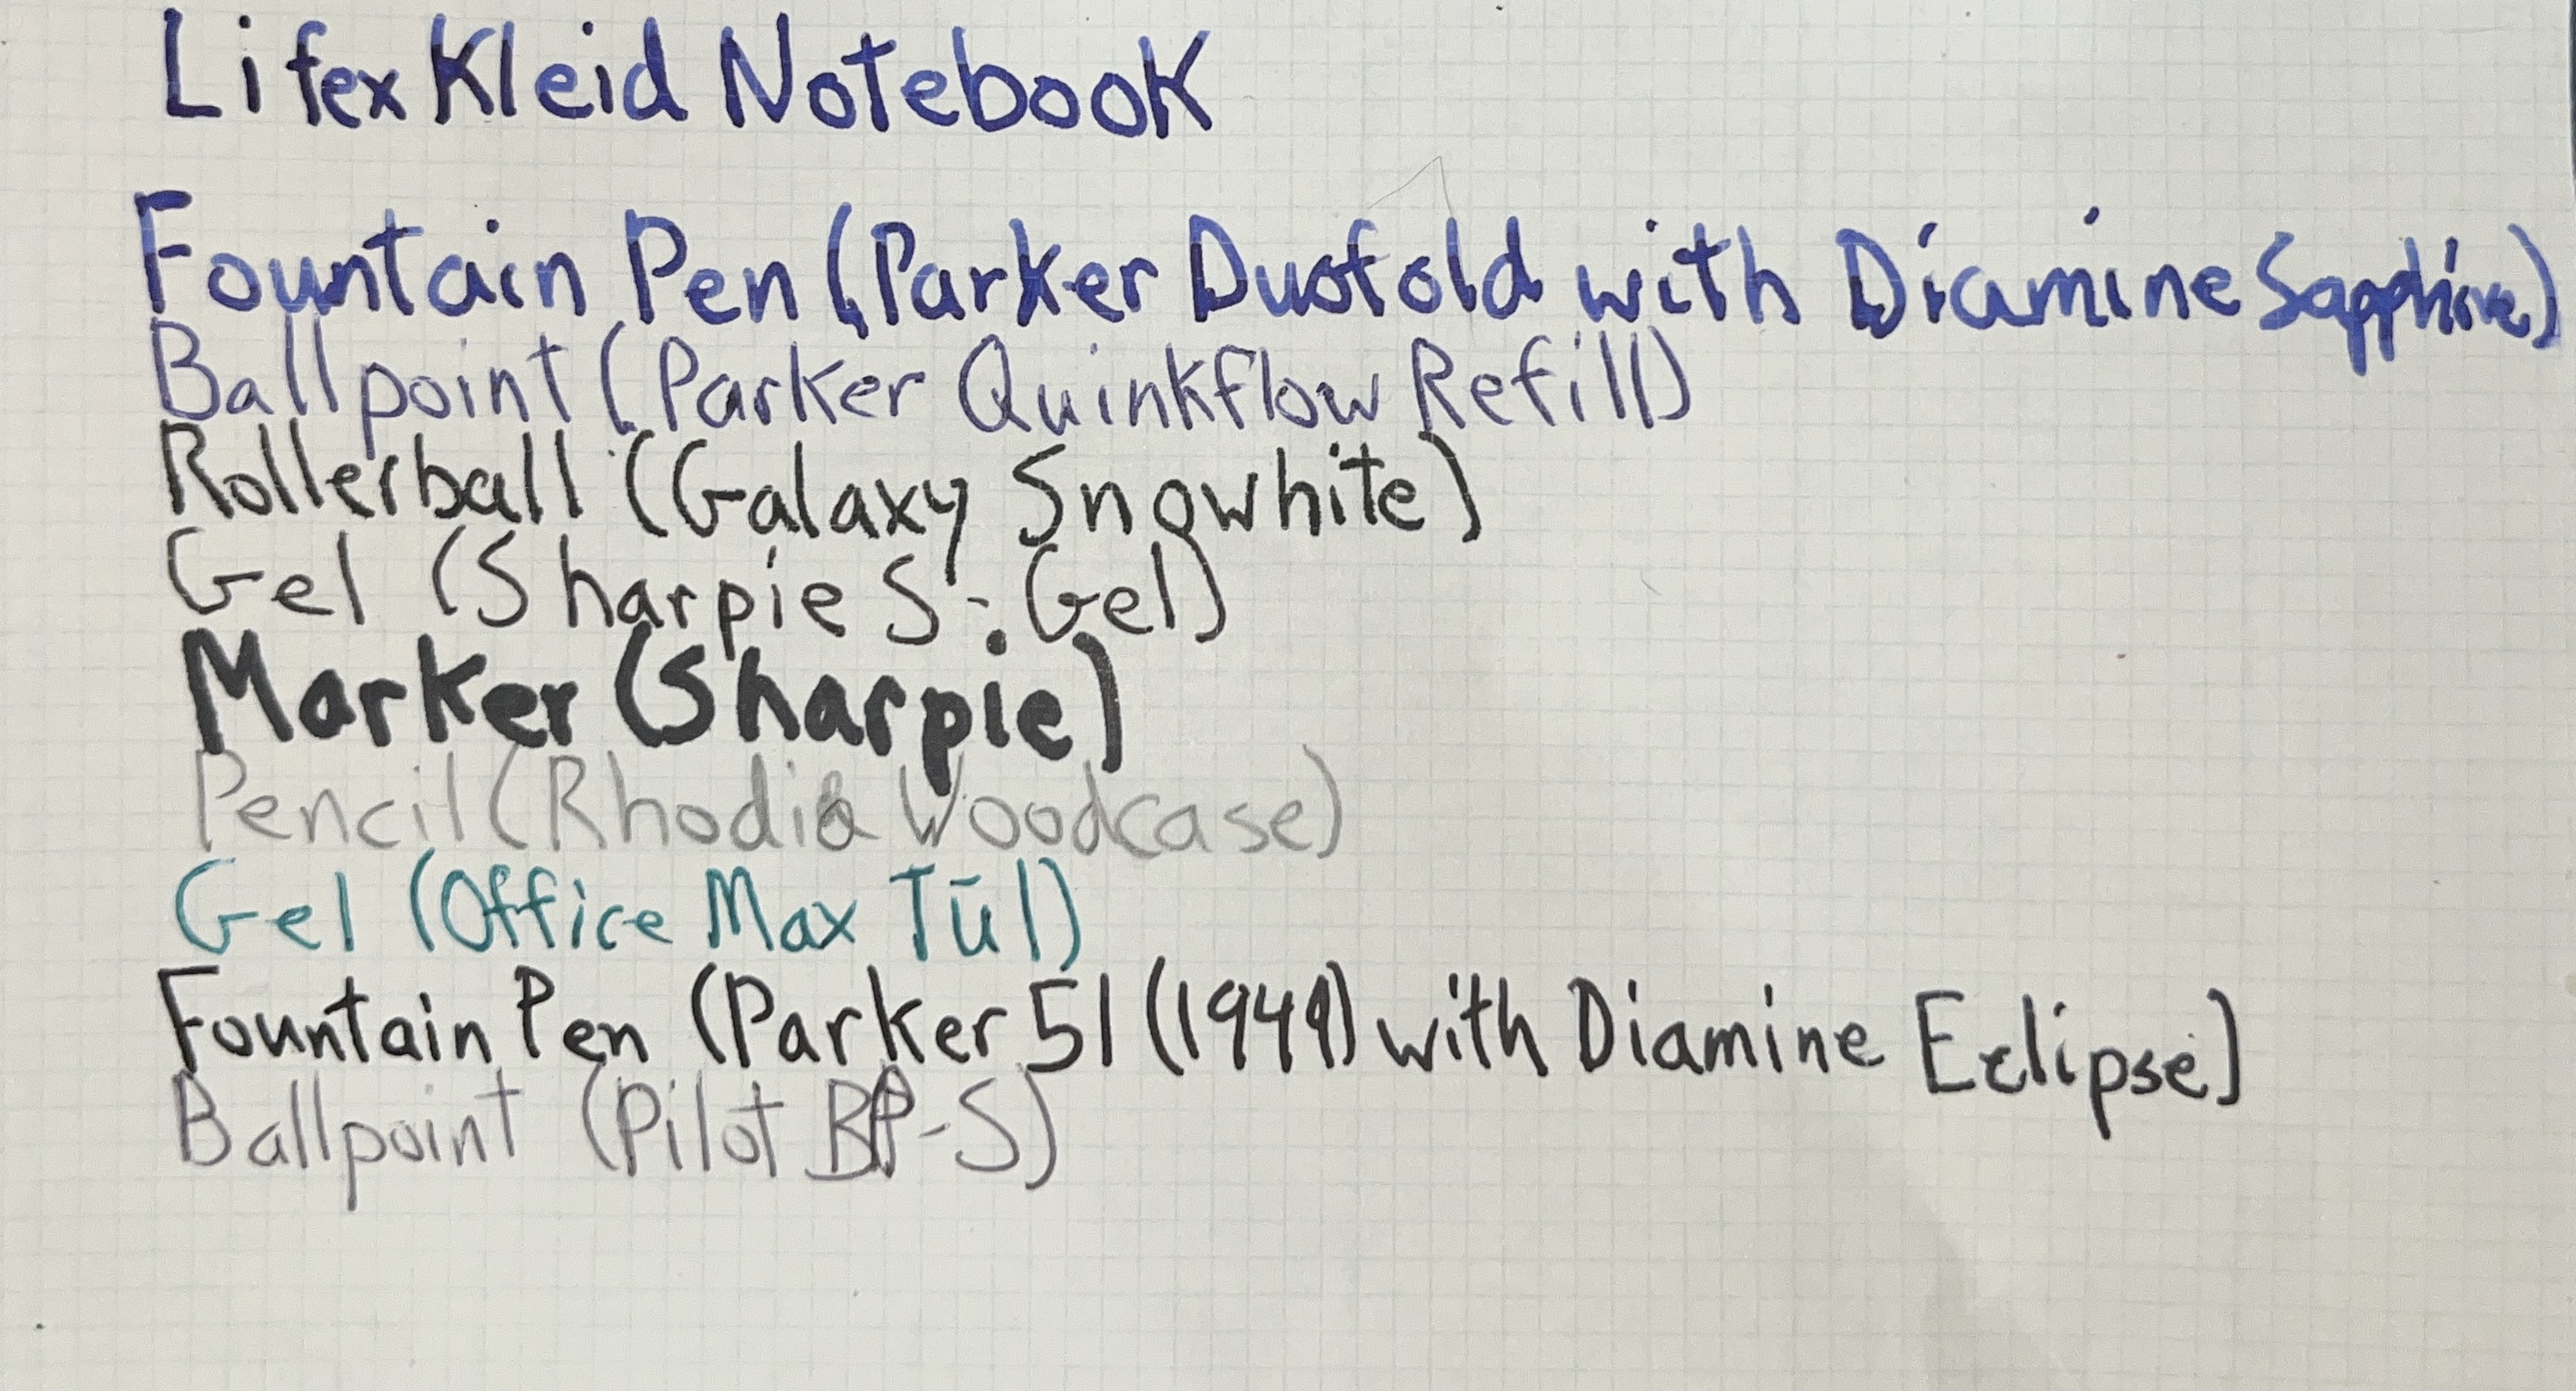 Lifex Kleid Notebook
Fountain Pen (Parker Duofold with Diamine Sapphire)
Ballpoint (Parker Quinkflow Refill)
Rollerball (Galaxy Snowhite)
Gel (Sharpie S-Gel)
Marker (Sharpie)
Pencil (Rhodia Woodcase)
Gel (Office Max Tūl)
Fountain Pen (Parker 51 (1949) with Diamine Eclipse)
Ballpoint (Pilot BP-S)